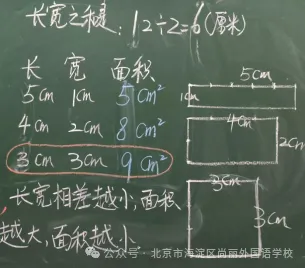 长宽之和: 12÷2=6(厘米)
长 宽 面积
5cm 1cm 5cm²
4cm 2cm 8cm²
3cm 3cm 9cm²
长宽相差越小,面积
越大,面积越小
5cm
1cm
4cm
2cm
3cm
3cm
公众号·北京市海淀区尚丽外国语学校